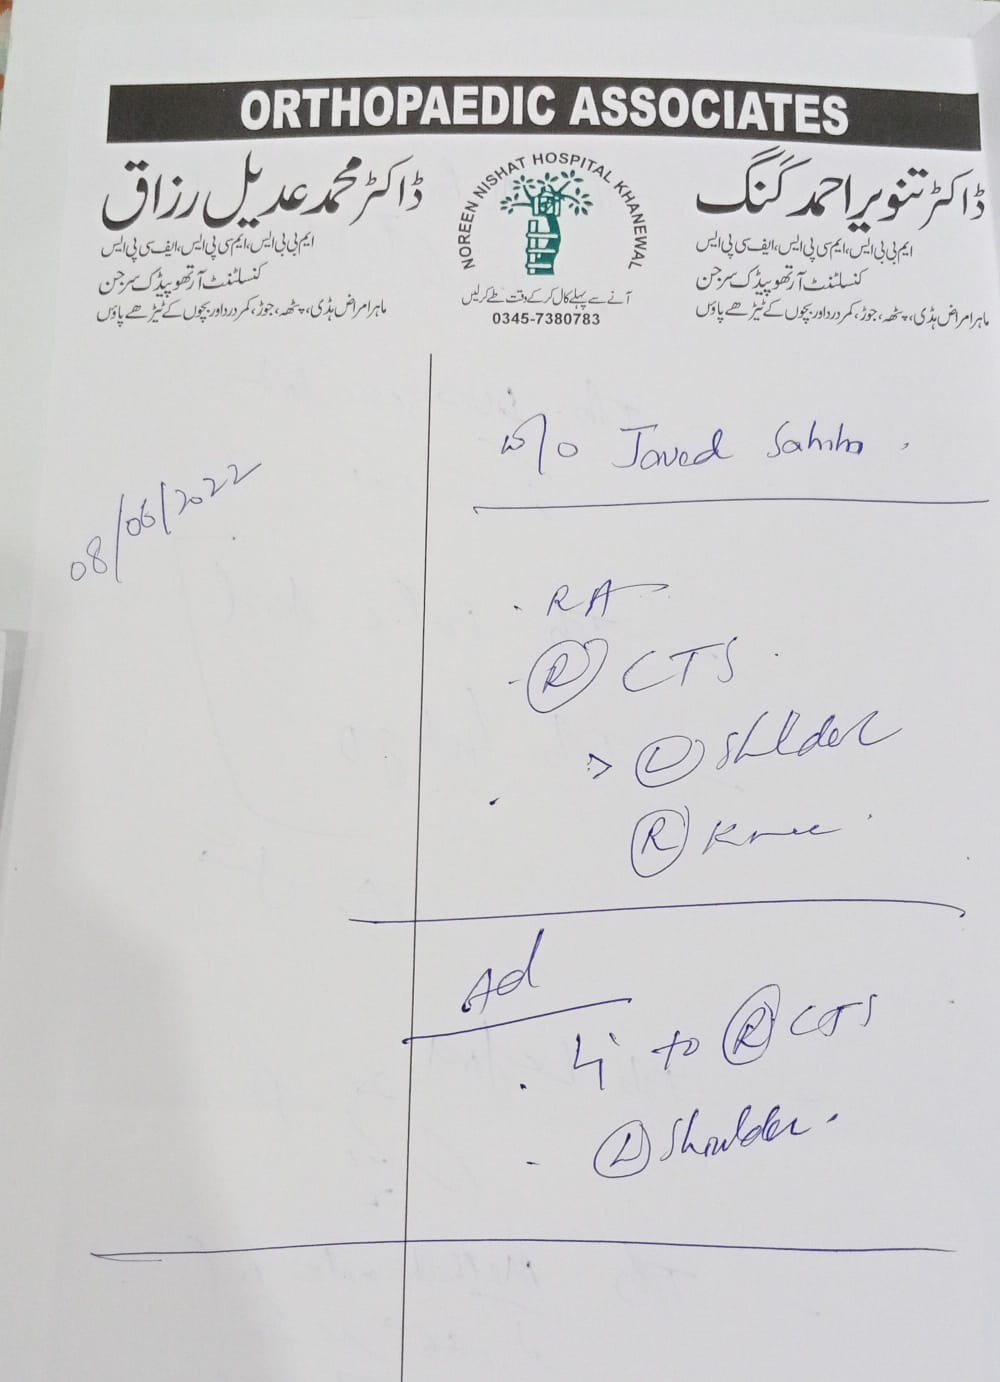 ORTHOPAEDIC ASSOCIATES
ڈاکٹر تنویر احمد کنگ
ایم بی بی ایس، ایم سی پی ایس، ایف سی پی ایس
کنسلٹنٹ آرتھوپیڈک سرجن
ماہر امراض ہڈی، پٹھہ، جوڑ، کمر درد اور بچوں کے ٹیڑھے پاؤں
NOREEN NISHAT HOSPITAL KHANEWAL
آنے سے پہلے کال کر کے وقت طے کر لیں
0345-7380783
ڈاکٹر محمد عدیل رزاق
ایم بی بی ایس، ایم سی پی ایس، ایف سی پی ایس
کنسلٹنٹ آرتھوپیڈک سرجن
ماہر امراض ہڈی، پٹھہ، جوڑ، کمر درد اور بچوں کے ٹیڑھے پاؤں
w/o Javed Sahib
08/06/2022
RA
R CTS
L Shulder
R Knee
Ad
to R CTS
L Shoulder